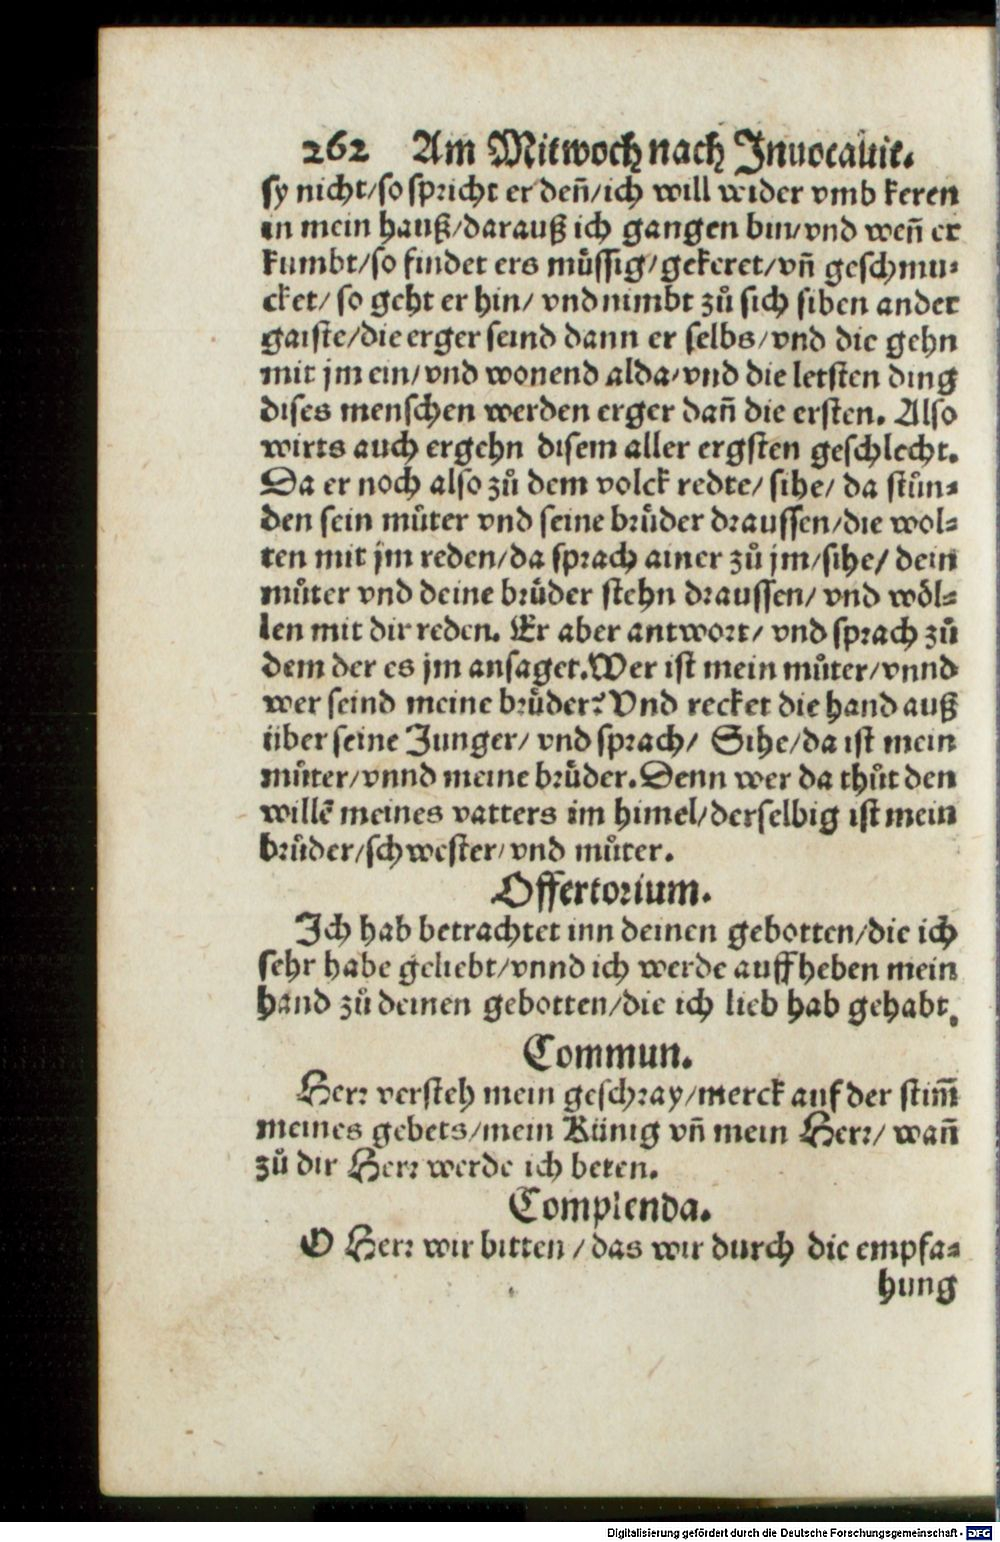 262 Am Mitwoch nach Inuocauit.
sy nicht/so spricht er deñ/ich will wider vmb keren
in mein hauß/darauß ich gangen bin/vnd weñ er
kumbt/so findet ers muͤssig/gekeret/vñ geschmu-
cket/ so geht er hin/ vnd nimbt zů sich siben ander
gaiste/die erger seind dann er selbs/vnd die gehn
mit jm ein/vnd wonend alda/vnd die letsten ding
dises menschen werden erger dañ die ersten. Also
wirts auch ergehn disem aller ergsten geschlecht.
Da er noch also zů dem volck redte/ sihe/ da stůn-
den sein můter vnd seine bruͤder draussen/die wol-
ten mit jm reden/da sprach ainer zů jm/sihe/ dein
můter vnd deine bruͤder stehn draussen/ vnd woͤl-
len mit dir reden. Er aber antwort/ vnd sprach zů
dem der es jm ansaget. Wer ist mein můter/vnnd
wer seind meine bruͤder? Vnd recket die hand auß
über seine Junger/ vnd sprach/ Sihe/da ist mein
můter/vnnd meine bruͤder. Denn wer da thůt den
willē meines vatters im himel/derselbig ist mein
brůder/schwester/vnd můter.
Offertorium.
Ich hab betrachtet inn deinen gebotten/die ich
sehr habe geliebt/vnnd ich werde auffheben mein
hand zů deinen gebotten/die ich lieb hab gehabt.
Commun.
Herr versteh mein geschray/merck auf der stim̄
meines gebets/mein Künig vñ mein Herr/ wañ
zů dir Herr werde ich beten.
Complenda.
O Herr wir bitten / das wir durch die empfa-
hung
Digitalisierung gefördert durch die Deutsche Forschungsgemeinschaft - DFG